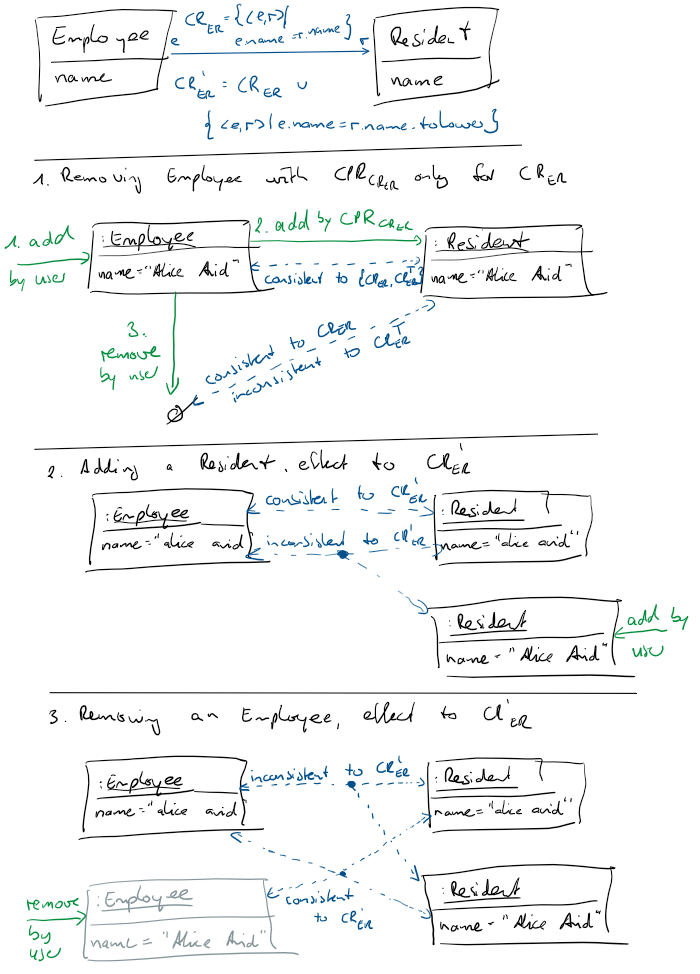 Employee
name
CR_ER = {<e,r> |
e.name = r.name}
e
r
Resident
name
CR'_ER = CR_ER ∪
{<e,r> | e.name = r.name.toLower}
1. Removing Employee with CPR_CR_ER only for CR_ER
1. add
by user
:Employee
name="Alice Arid"
2. add by CPR_CR_ER
consistent to {CR_ER, CR^T_ER}
:Resident
name="Alice Arid"
3.
remove
by user
consistent to CR_ER
inconsistent to CR^T_ER
∅
2. Adding a Resident, effect to CR'_ER
:Employee
name="alice arid
consistent to CR'_ER
inconsistent to CR'_ER
:Resident
name="alice arid"
:Resident
name="Alice Arid"
add by
user
3. Removing an Employee, effect to CR'_ER
:Employee
name="alice arid"
inconsistent to CR'_ER
:Resident
name="alice arid"
remove
by
user
:Employee
name = "Alice Arid"
consistent
to CR'_ER
:Resident
name="Alice Arid"